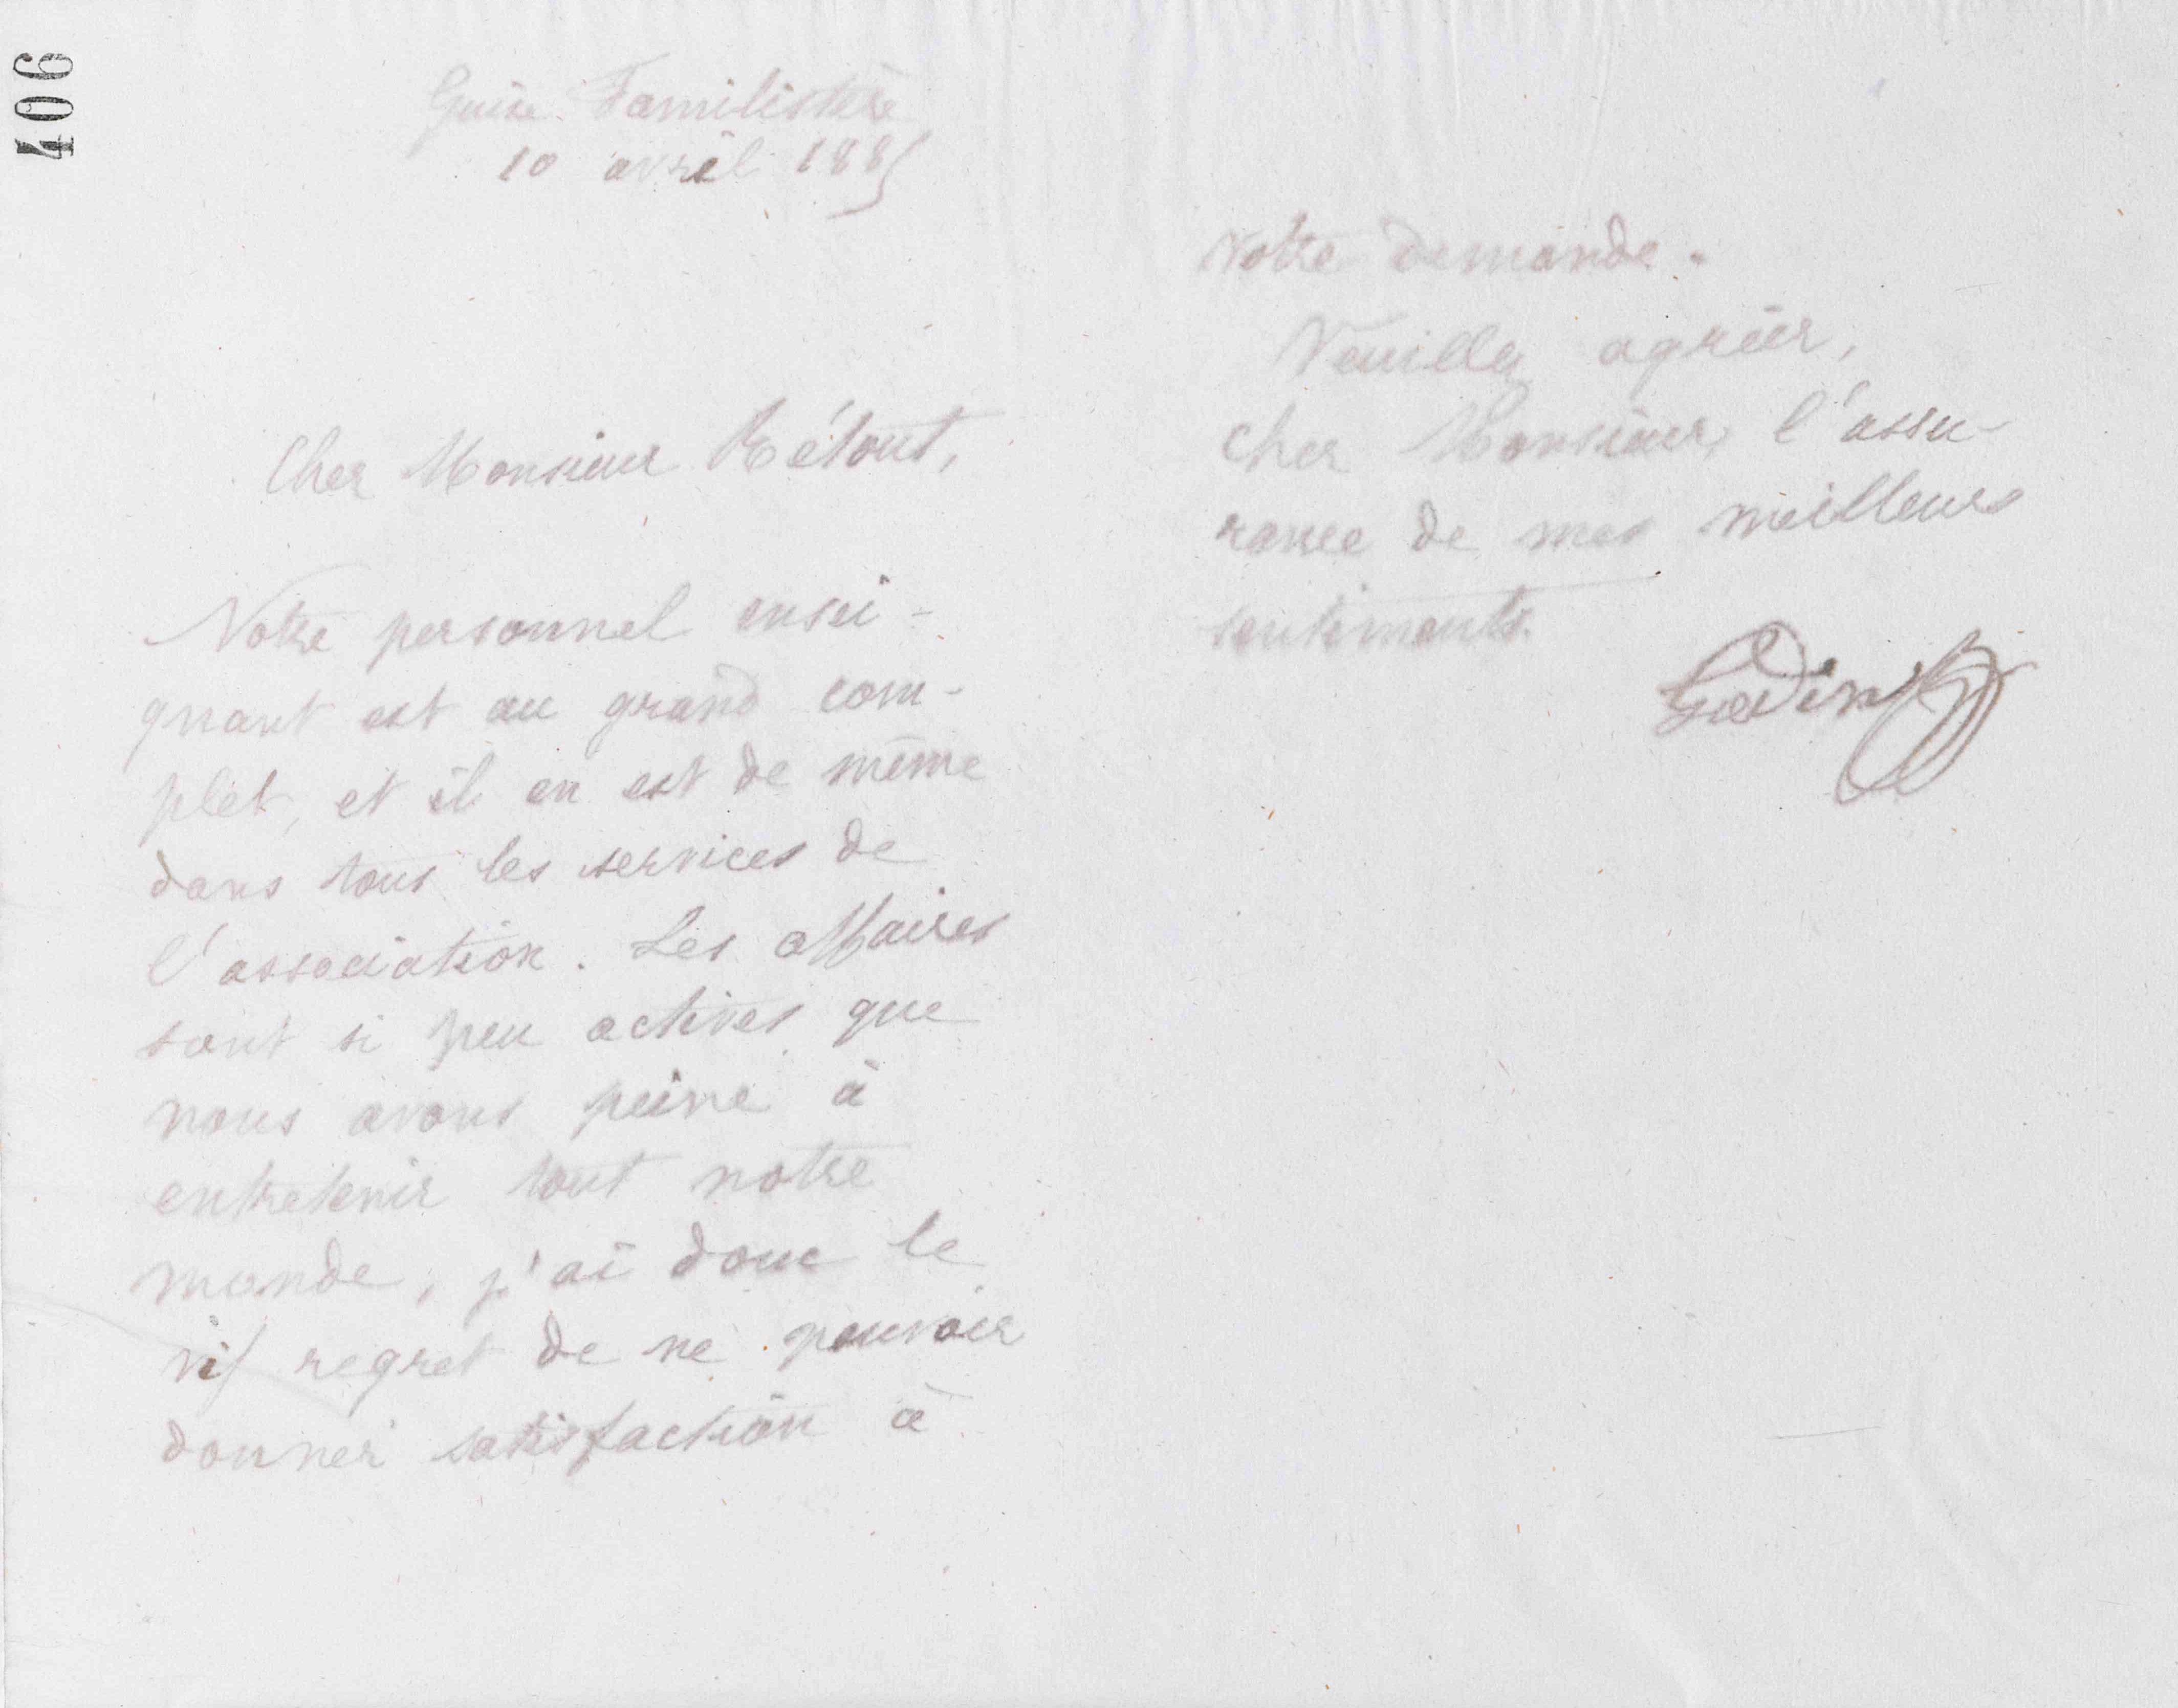 406
Guise Familistère
10 avril 1885
Cher Monsieur Rétout,
Notre personnel ensei-
gnant est au grand com-
plet, et il en est de même
dans tous les services de
l'association. Les affaires
sont si peu actives que
nous avons peine à
entretenir tout notre
monde, j'ai donc le
vif regret de ne pouvoir
donner satisfaction à
votre demande.
Veuillez agréer,
cher Monsieur, l'assu-
rance de mes meilleurs
sentiments.
Godin